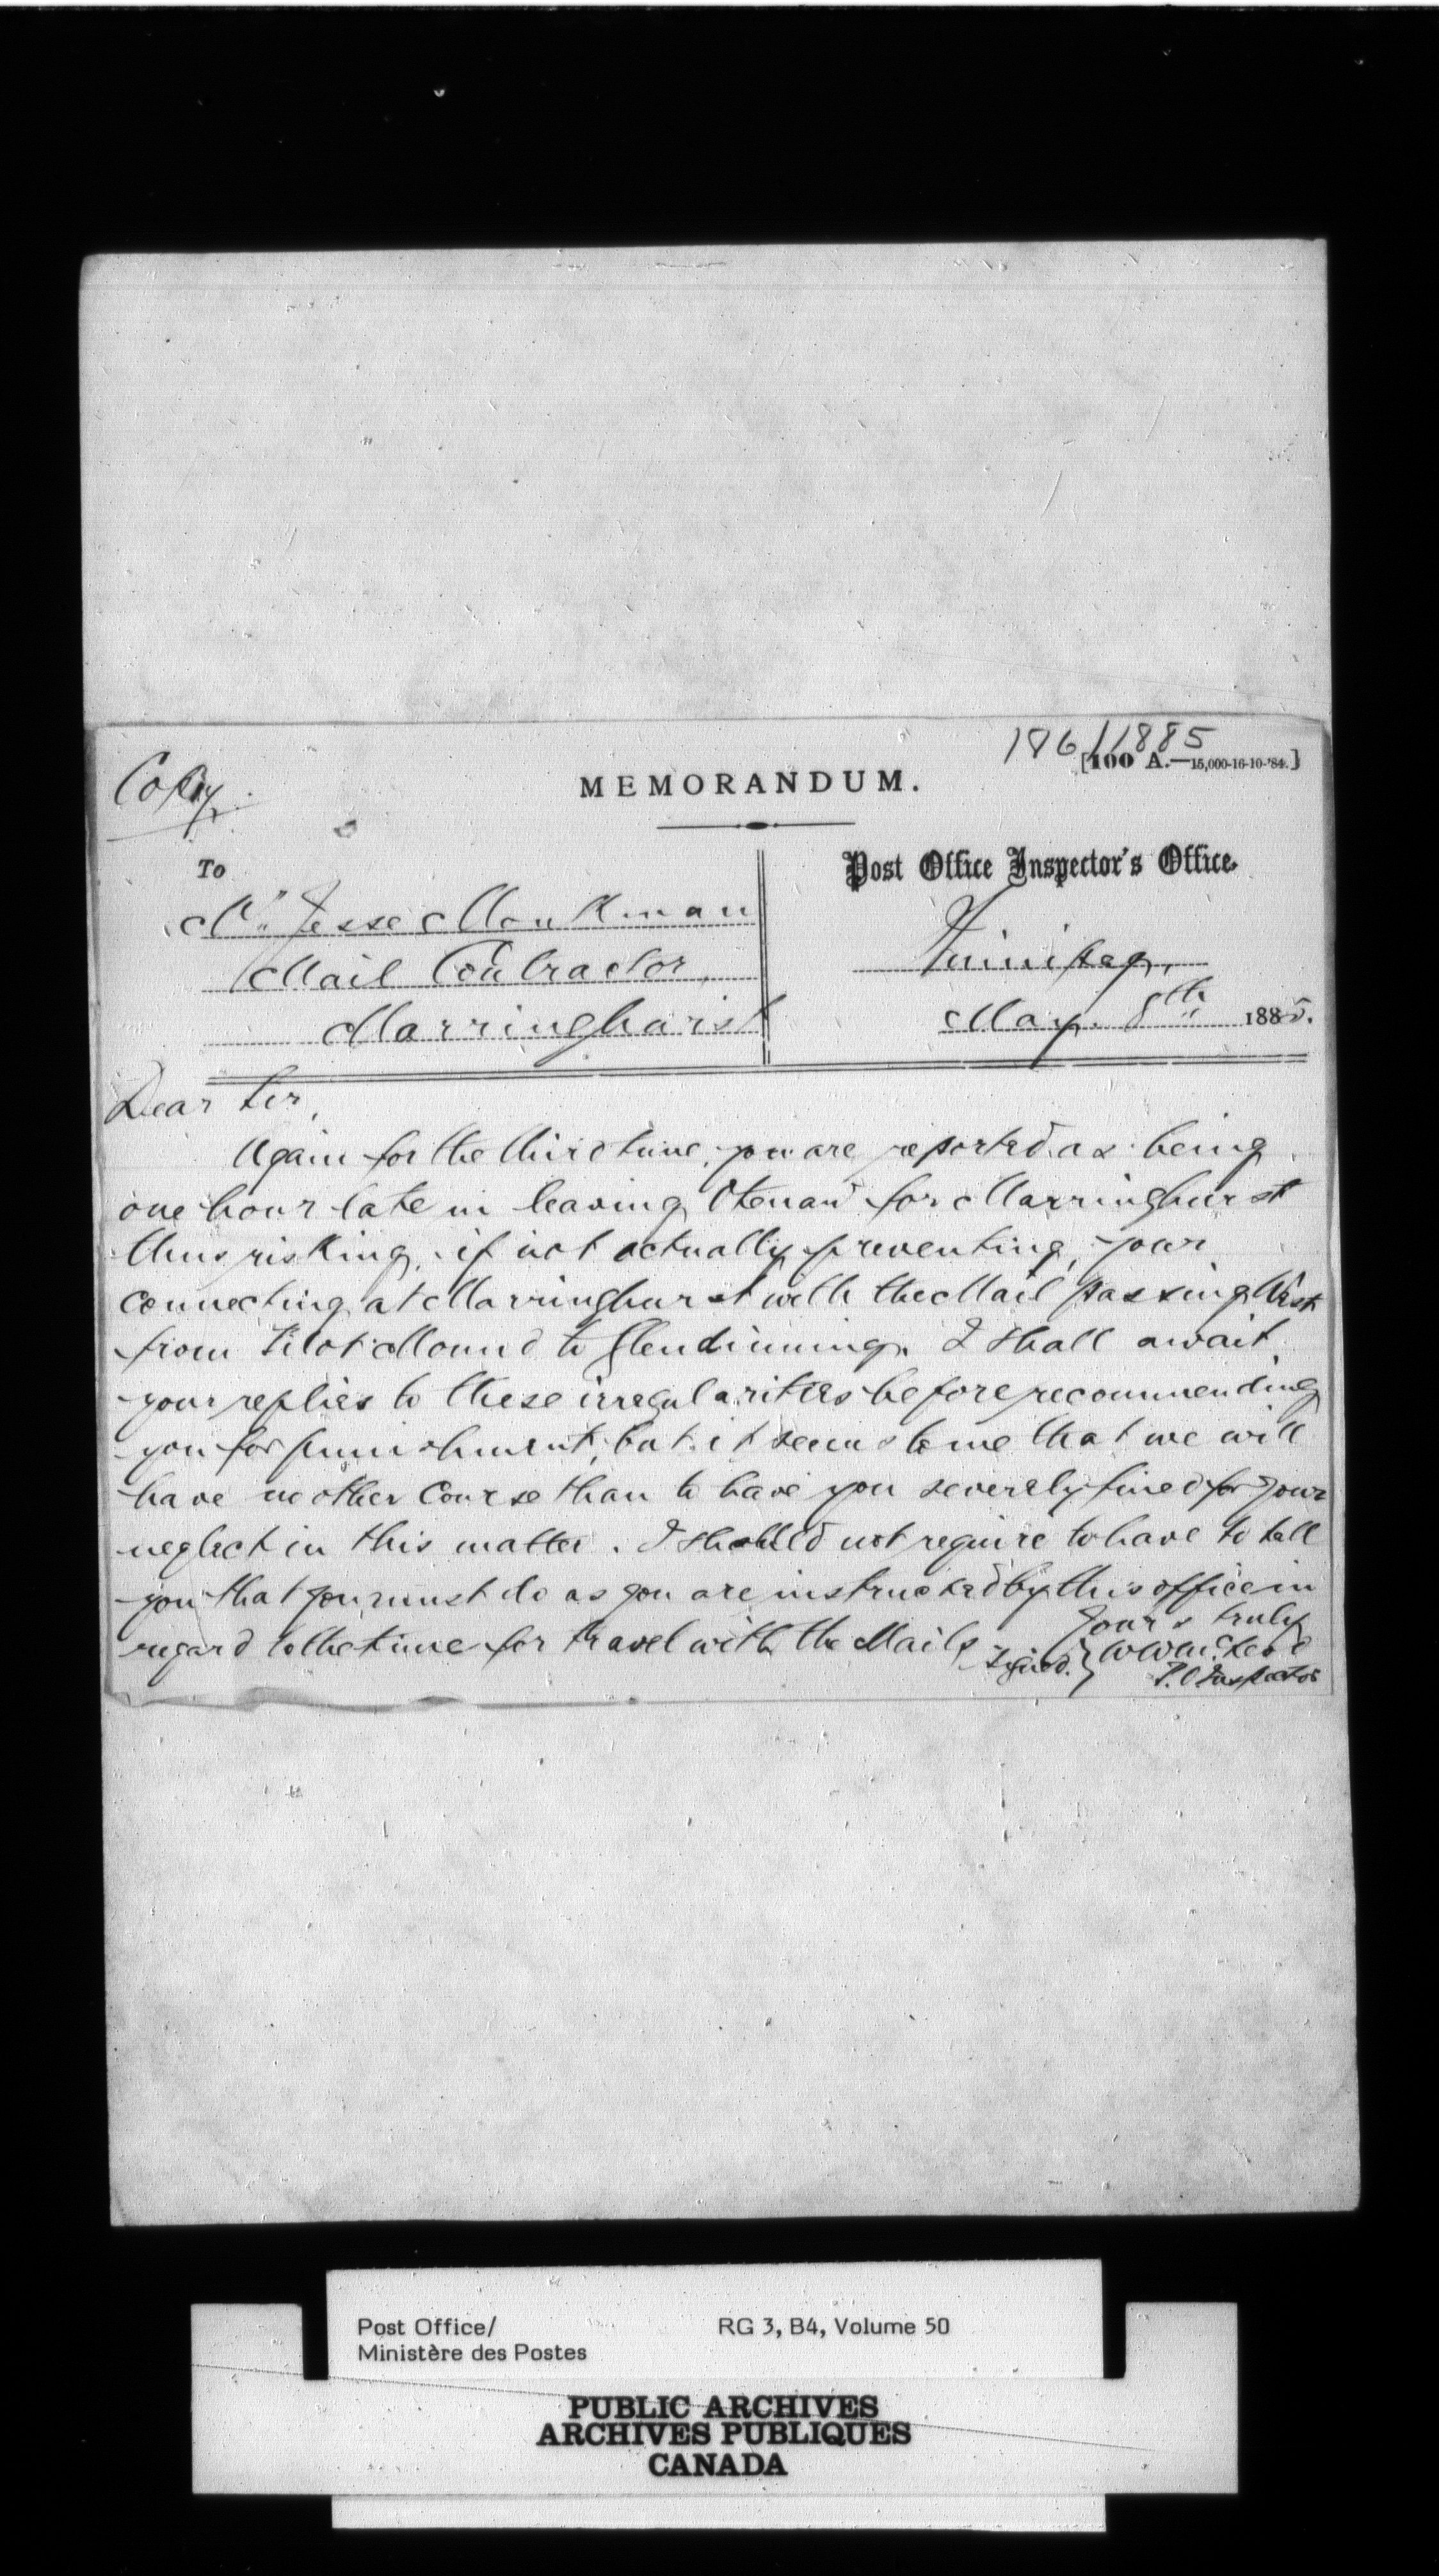 186/1885
[100 A.—15,000-16-10-'84.]
Copy
MEMORANDUM.
To
Mr. Jesse Monkman
Mail Contractor,
Marringhurst
Post Office Inspector's Office.
Winnipeg,
May. 8th 1885.
Dear Sir,
Again for the third time, you are reported as being
one hour late in leaving Otenaw for Marringhurst
thus risking, if not actually preventing, your
connecting at Marringhurst with the Mail passing West
from Pilot Mound to Glendinning. I shall await
your replies to these irregularities before recommending
you for punishment, but it seems to me that we will
have no other Course than to have you severely fined for your
neglect in this matter. I should not require to have to tell
you that you must do as you are instructed by this office in
regard to the time for travel with the Mails
Yours truly
Signed. W W McLeod
P.O. Inspector
Post Office/
Ministère des Postes
RG 3, B4, Volume 50
PUBLIC ARCHIVES
ARCHIVES PUBLIQUES
CANADA